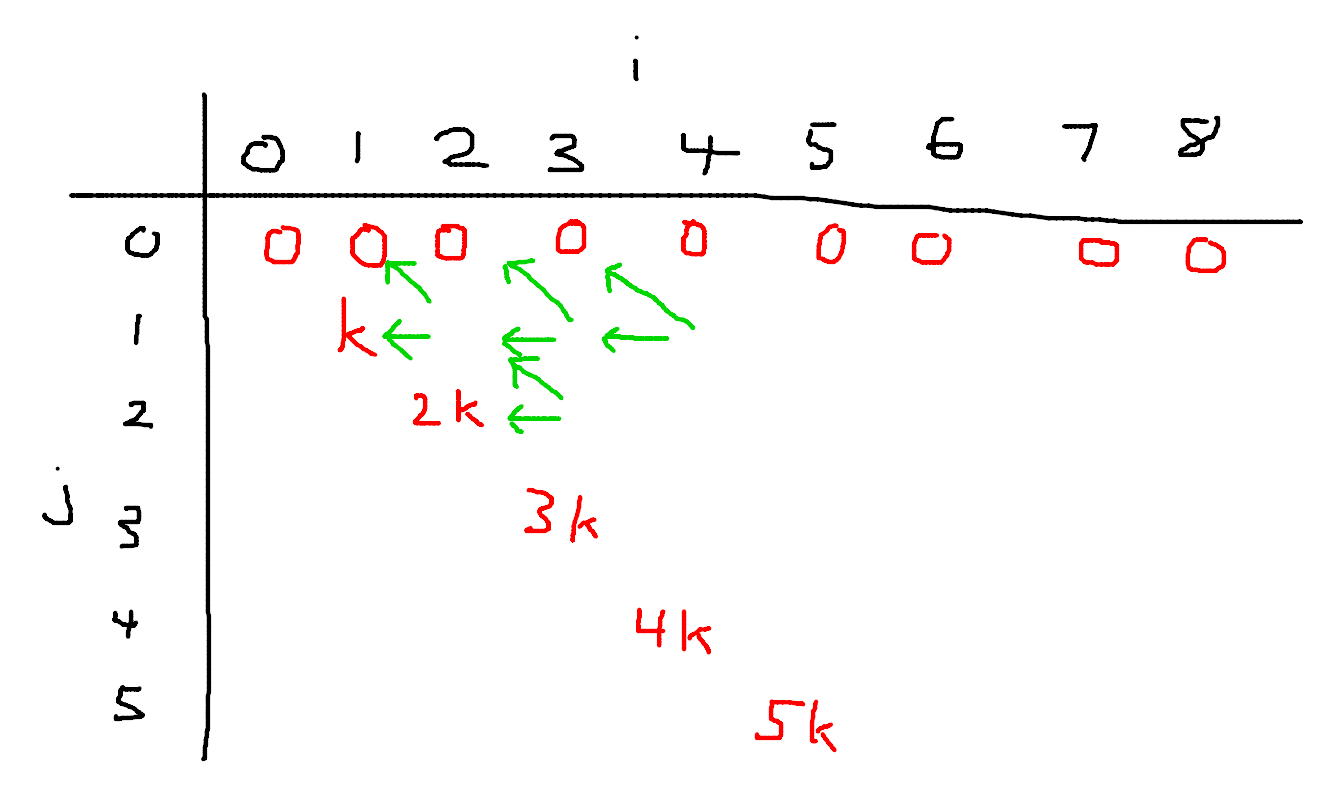 i
0 1 2 3 4 5 6 7 8
0 0 0 0 0 0 0 0 0 0
1 k
2 2k
j
3 3k
4 4k
5 5k